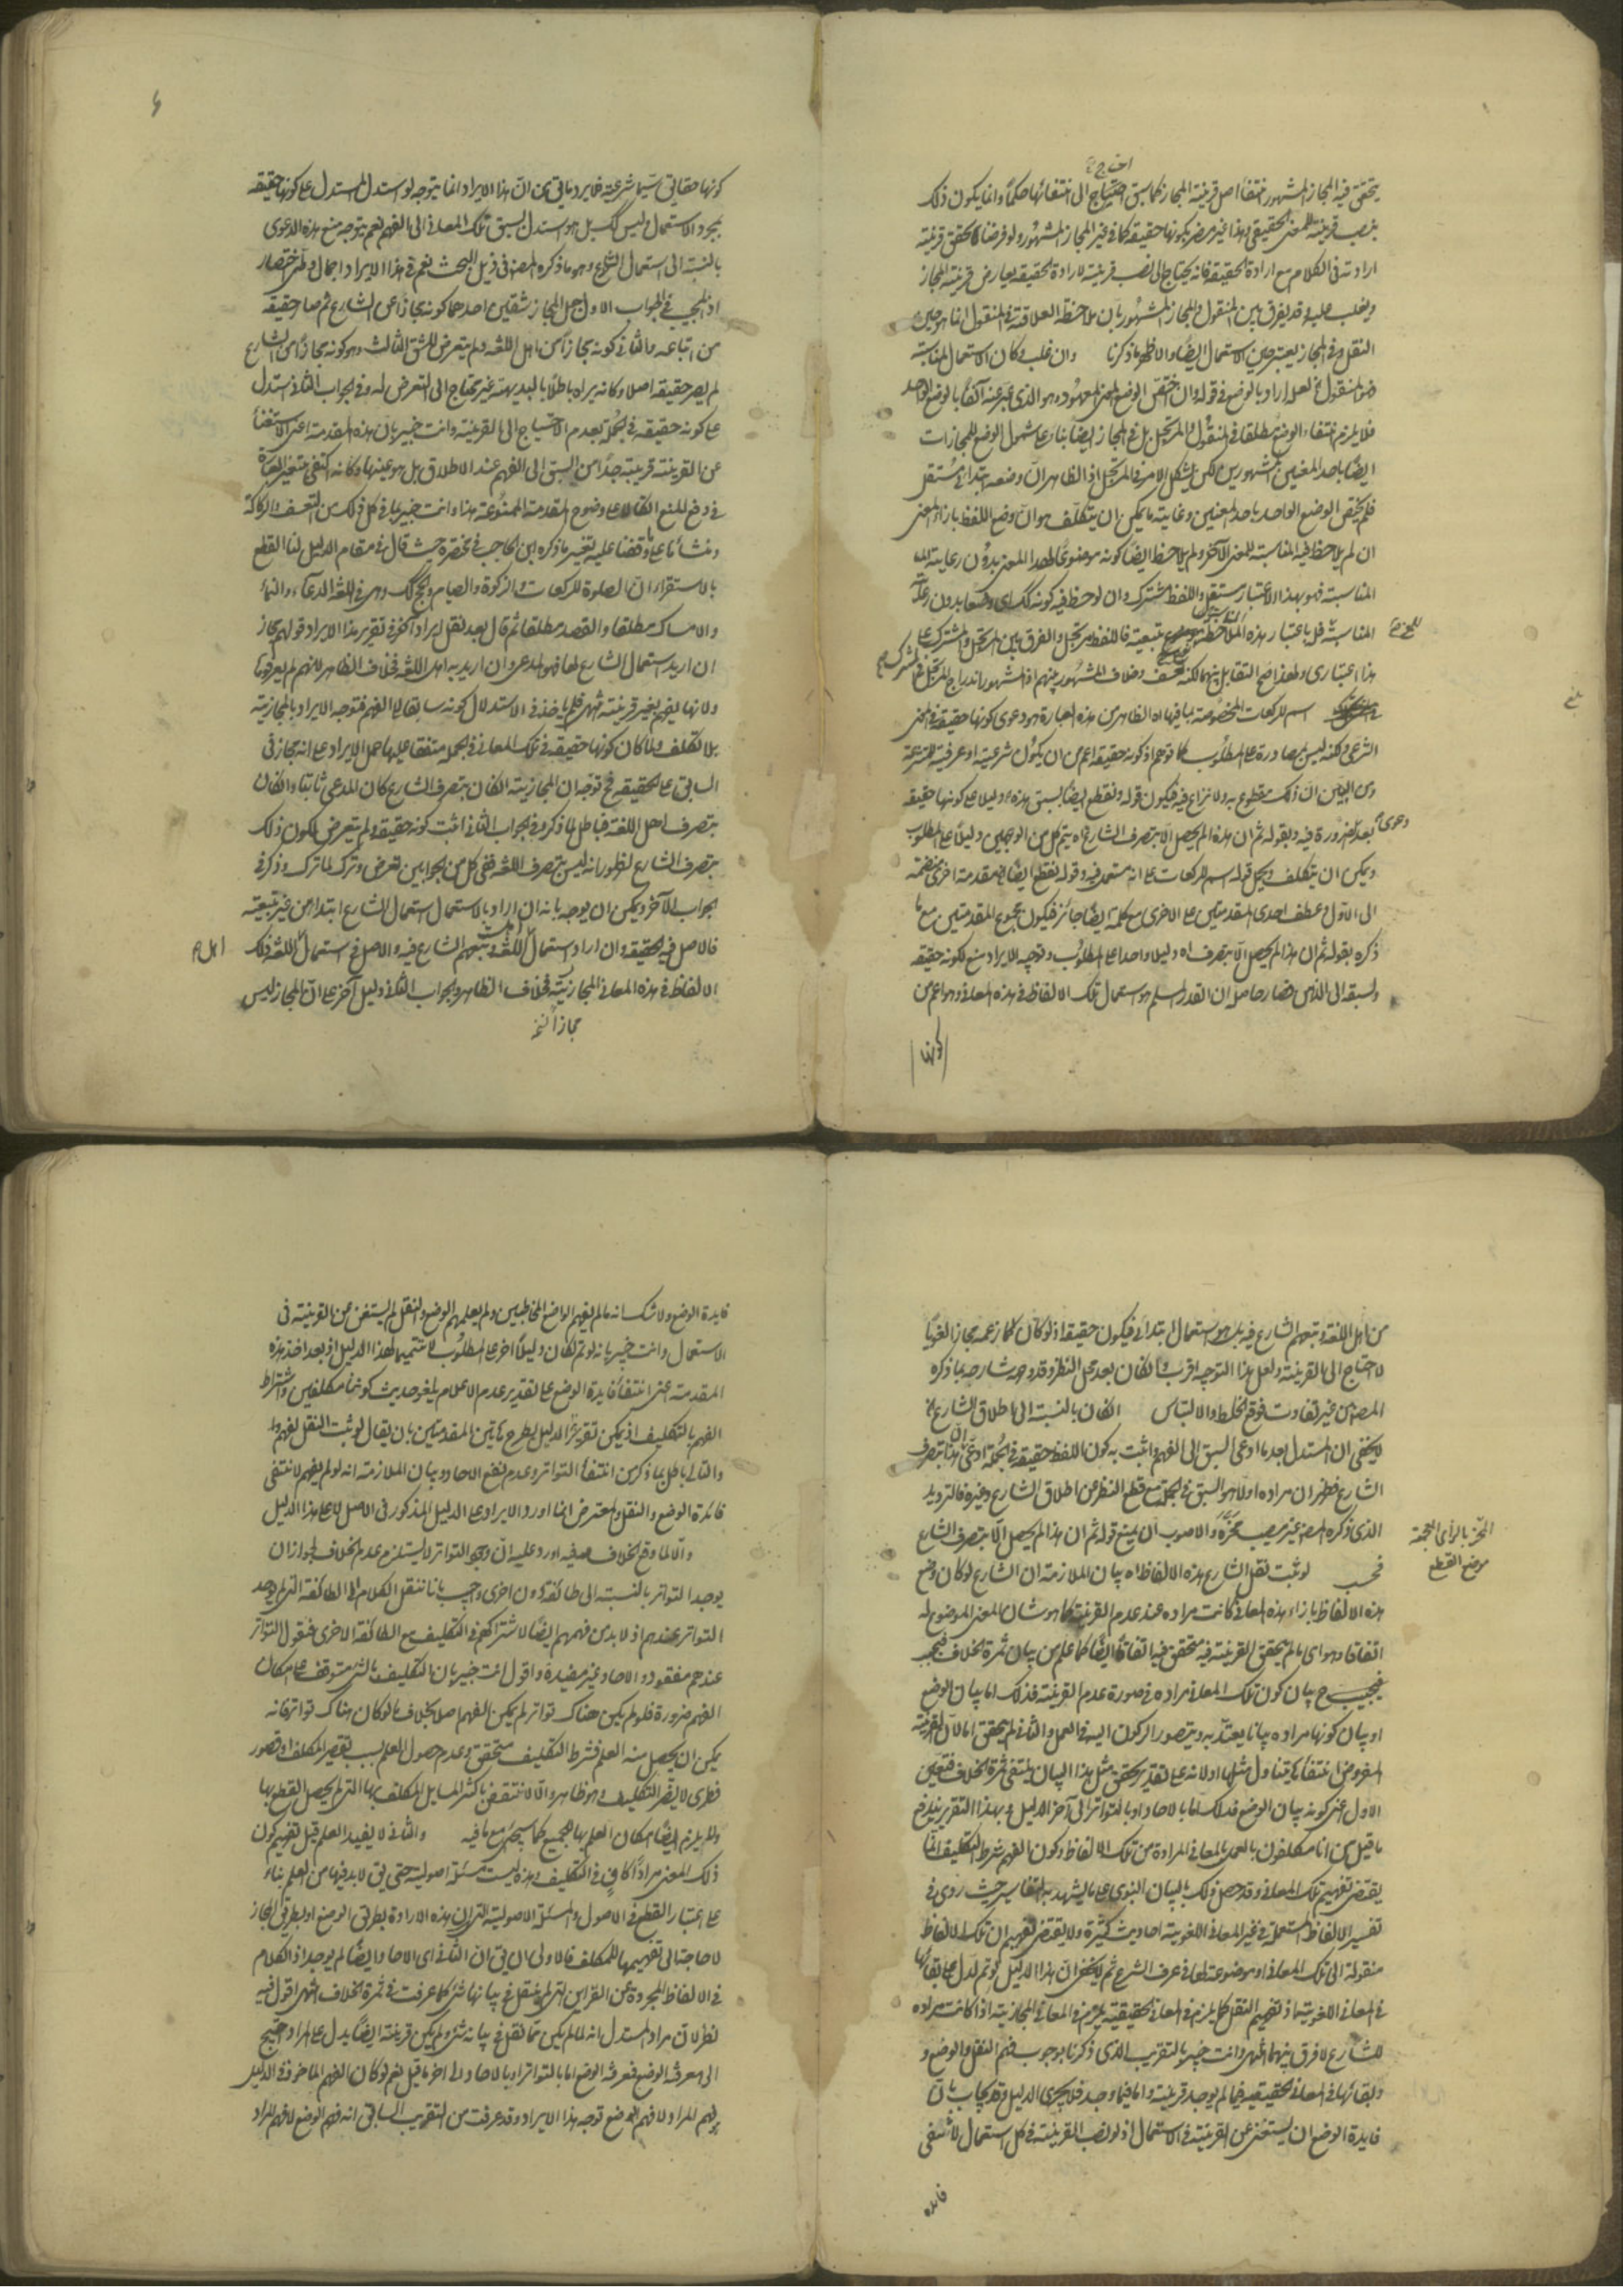 يتحقق فيه المجاز المشهور انتفاء اصل قرينة المجاز كما سبق احتياج الى انتفائها حكما وانما يكون ذلك
بنصب قرينة للمعنى الحقيقي وهذا غير مضر بكونها حقيقة كما في غير المجاز المشهور ولو فرضنا تحقق قرينة
ارادته في الكلام مع ارادة الحقيقة فانه يحتاج الى نصب قرينة لارادة الحقيقة يعارض قرينة المجاز
ويغلب عليه وقد يفرق بين المنقول والمجاز المشهور بان ملاحظة العلاقة في المنقول انما هو حين
النقل وفي المجاز يعتبر حين الاستعمال ايضا والاظهر ما ذكرنا وان غلب وكان الاستعمال لمناسبة
فهو المنقول لعله اراد بالوضع في قوله وان اختص الوضع المعنى المعهود وهو الذي عبر عنه آنفا بالوضع الواحد
فلا يلزم انتفاء الوضع مطلقا في المنقول والمرتجل بل في المجاز ايضا بناء على شمول الوضع للمجازات
ايضا باحد المعنيين المشهورين لكن يشكل الامر في المرتجل اذ الظاهر ان وضعه ابتدائي مستقل
فلم يختص الوضع الواحد باحد المعنيين وغاية ما يمكن ان يتكلف هو ان وضع اللفظ بازاء المعنى
ان لم يلاحظ فيه المناسبة للمعنى الآخر ولم يلاحظ ايضا كونه موضوعا لهذا المعنى بدون رعاية
المناسبة فهو بهذا الاعتبار مستقل واللفظ مشترك وان لوحظ فيه كونه كك اي وضعا بدون رعاية
المناسبة فل باعتبار هذه الملاحظة تبعية فاللفظ مرتجل والفرق بين المرتجل والمشترك على
هذا اعتباري ولهذا صح التقابل بينهما لكنه تعسف وخلاف المشهور بينهم اذ المشهور اندراج المرتجل في المشترك
اسم للركعات المخصوصة بما فيها اه الظاهر من هذه العبارة هو دعوى كونها حقيقة في المعنى
الشرعي ولكنه ليس مصادرة على المطلوب كما توهم اذ كونه حقيقة اعم من ان يكون شرعية او عرفية للمتشرعة
ومن البين ان ذلك مقطوع به ولا نزاع فيه فيكون قوله ونقطع ايضا بسبق هذه اه دليلا على كونها حقيقة
بعد دعوى الضرورة فيه وبقوله ثم ان هذا لم يحصل الا بتصرف الشارع اه يتم كل من الوجهين دليلا على المطلوب
ويمكن ان يتكلف ويجعل قوله اسم للركعات على انه مستعمل فيه وقوله نقطع ايضا مقدمة اخرى منضمة
الى الاول وعطف احدى المقدمتين على الاخرى مع كلمة ايضا جائز فيكون مجموع المقدمتين مع ما
ذكره بقوله ثم ان هذا لم يحصل الا بتصرف اه دليلا واحدا على المطلوب وتوجيه الايراد منع لكونه حقيقة
ولسبقه الى الذهن فصار حاصله ان القدر المسلم هو استعمال تلك الالفاظ في هذه المعاني وهو اعم من
كونها
كونها حقايق سيما شرعية فلا يرد ما في من ان هذا الايراد انما يتوجه لو استدل المستدل على كونها حقيقة
بمجرد الاستعمال وليس كك بل هو استدل بسبق تلك المعاني الى الفهم نعم يتوجه منع هذه الدعوى
بالنسبة الى استعمال الشارع وهو ما ذكره المص في ذيل البحث نعم في هذا الايراد اجمال واختصار
اذ المجيب في الجواب الاول جعل المجاز شقين احدهما كونه مجازا عن الشارع ثم صار حقيقة
من اتباعه والثاني كونه مجازا من اهل اللغة ولم يتعرض للشق الثالث وهو كونه مجازا من الشارع
لم يصر حقيقة اصلا وكانه يراه باطلا بالبديهة غير محتاج الى التعرض له وفي الجواب الثاني استدل
على كونه حقيقة في الجملة بعدم الاحتياج الى القرينة وانت خبير بان هذه المقدمة اعني الاستغناء
عن القرينة قريبة جدا من السبق الى الفهم عند الاطلاق بل هو عينها وكانه اكتفى بتغيير العبارة
في دفع المنع اتكالا على وضوح المقدمة الممنوعة هذا وانت خبير بما في كل ذلك من التعسف والركاكة
ومنشأ ما وقفنا عليه تغيير ما ذكره ابن الحاجب في مختصره حيث قال في مقام الدليل لنا القطع
بالاستقراء ان الصلوة للركعات والزكوة والصيام والحج كك وهي في اللغة الدعاء والنماء
والامساك مطلقا والقصد مطلقا ثم قال بعد نقل ايراد آخر في تقرير هذا الايراد قولهم مجاز
ان اريد استعمال الشارع لها فهو المدعى وان اريد به اهل اللغة فخلاف الظاهر لانهم لم يعرفوها
ولانها يفهم بغير قرينة انتهى فلم ياخذ في الاستدلال كونه سابقا الى الفهم فتوجه الايراد بالمجازية
بلا تكلف ولما كان كونها حقيقة في تلك المعاني في الجملة متفقا عليها حمل الايراد على انه مجاز في
السابق على الحقيقة فح توجه ان المجازية ان كان بتصرف الشارع كان المدعى ثابتا وان كان
بتصرف اهل اللغة فباطل لما ذكر وفي الجواب الثاني اثبت كونه حقيقة ولم يتعرض لكون ذلك
بتصرف الشارع لظهور انه ليس بتصرف اللغة ففي كل من الجوابين تعرض وترك لما ترك وذكر في
الجواب الآخر ويمكن ان يوجه بانه ان اراد بالاستعمال استعمال الشارع ابتداء من غير تبعية
فالاصل فيه الحقيقة وان اراد استعمال اهل اللغة وتبعهم الشارع فيه والاصل في استعمال اهل اللغة تلك
الالفاظ في هذه المعاني المجازية فخلاف الظاهر والجواب الثاني دليل آخر على ان المجاز ليس
مجازا لغة
من اهل اللغة وتبعهم الشارع فيه بل هو استعمال ابتدائي فيكون حقيقة اذ لو كان كما زعمه مجازا لغويا
لاحتاج الى القرينة ولعل هذا التوجيه اقرب وان كان بعد محل النظر وقد وجه شارحه بما ذكره
المص من غير تفاوت فوقع الخلط والالتباس ان كان بالنسبة الى اطلاق الشارع اه
لا يخفى ان المستدل بعد ما ادعى السبق الى الفهم واثبت به كون اللفظ حقيقة في الجملة ادعى ان هذا بتصرف
الشارع فظهر ان مراده اولا هو السبق في الجملة مع قطع النظر عن اطلاق الشارع وغيره فالترديد
الذي ذكره المص غير مصيب محزه والاصوب ان يمنع قوله ثم ان هذا لم يحصل الا بتصرف الشارع
المحز بالزاي المعجمة
موضع القطع
لو ثبت نقل الشارع هذه الالفاظ اه بيان الملازمة ان الشارع لو كان وضع
هذه الالفاظ بازاء هذه المعاني كانت مراده عند عدم القرينة كما هو شان المعنى الموضوع له
اتفاقا وهو اي ما لم يتحقق القرينة فيه متحقق فيه اتفاقا ايضا كما علم من بيان ثمرة الخلاف فيجب
فيجب ح بيان كون تلك المعاني مراده في صورة عدم القرينة فذلك اما بيان الوضع
او بيان كونها مراده بيانا يعتد به ويتصور الركون اليه في العمل والثاني لم يتحقق اما لان القرينة
المفروض انتفاؤها يتناول مثلها او لانه على تقدير تحقق مثل هذا البيان ينتفي ثمرة الخلاف فتعين
الاول اعني كونه بيان الوضع فذلك اما بالاحاد او بالتواتر الى آخر الدليل وبهذا التقرير يندفع
ما قيل من انا مكلفون بالعمل بالمعاني المرادة من تلك الالفاظ وكون الفهم شرط التكليف انما
يقتضي تفهيم تلك المعاني وقد حصل ذلك بالبيان النبوي على ما يشهد به التفاسير حيث روى في
تفسير الالفاظ المستعملة في غير المعاني اللغوية احاديث كثيرة ولا يقتضي تفهيم ان تلك الالفاظ
منقولة الى تلك المعاني او موضوعة لها في عرف الشرع ثم لا يخفى ان هذا الدليل لو تم لدل على بقائها
في المعاني اللغوية اذ تفهيم النقل كما يلزم في المعاني الحقيقية يلزم في المعاني المجازية اذا كانت مراده
للشارع لا فرق بينهما انتهى وانت خبير بالتقريب الذي ذكرنا بوجوب فهم النقل والوضع و
وبقائها في المعاني الحقيقية فيما لم يوجد قرينة واما فيما وجد فلا يجري الدليل وقد يجاب بان
فايدة الوضع ان يستغنى عن القرينة في الاستعمال اذ لو نصب القرينة في كل استعمال لانتفى
فايده
فايدة الوضع ولا شك انه ما لم يفهم الواضع المخاطبين ولم يعلمهم الوضع والنقل لم يستغن عن القرينة في
الاستعمال وانت خبير بانه لو تم لكان دليلا اخر على المطلوب لا تتميما لهذا الدليل اذ بعد اخذ هذه
المقدمة اعني انتفاء فايدة الوضع على تقدير عدم الاعلام يلغو حديث كوننا مكلفين واشتراط
الفهم بالتكليف اذ يمكن تقرير الدليل بطرح هاتين المقدمتين بان يقال لو ثبت النقل لفهموا
والتالي باطل بما ذكر من انتفاء التواتر وعدم نفع الاحاد وبيان الملازمة انه لو لم يفهم لانتفى
فائدة الوضع والنقل والمعترض انما اورد الايراد على الدليل المذكور في الاصل لا على هذا الدليل
والا لما وقع الخلاف فيه اورد عليه ان وجود التواتر لا يستلزم عدم الخلاف لجواز ان
يوجد التواتر بالنسبة الى طائفة دون اخرى واجيب بانا ننقل الكلام الى الطائفة التي لم يوجد
التواتر عندهم اذ لا بد من فهمهم ايضا لاشتراكهم في التكليف مع الطائفة الاخرى فنقول التواتر
عندهم مفقود والاحاد غير مفيدة واقول انت خبير بان التكليف بالشئ متوقف على امكان
الفهم ضرورة فلو لم يكن هناك تواتر لم يمكن الفهم اصلا بخلاف ما لو كان هناك تواتر فانه
يمكن ان يحصل منه العلم فشرط التكليف متحقق وعدم حصول العلم بسبب تقصير المكلف او قصور
فطرى لا يضر التكليف وهو ظاهر والا لانتقض باكثر المسايل المكلف بها التي لم يحصل القطع بها
ولم يلزم ايضا امكان العلم بها للجميع كما سيجئ مع ما فيه والثاني لا يفيد العلم قيل تفهيم كون
ذلك المعنى مرادا كاف في التكليف وهذه ليست مسئلة اصولية حتى يق لا بد فيها من العلم بناء
على اعتبار القطع في الاصول والمسئلة الاصولية التي ان هذه الارادة بطريق الوضع او بطريق المجاز
لا حاجة الى تفهيمها للمكلف فالاولى ان يق ان الثاني اي الاحاد ايضا لم يوجد اذ الكلام
في الالفاظ المجردة عن القراين التي لم ينقل في بيانها شئ كما عرفت في ثمرة الخلاف انتهى اقول فيه
نظر لان مراد المستدل انه لما لم يكن مما نقل في بيانه شئ ولم يكن قرينة ايضا يدل على المراد احتيج
الى معرفة الوضع فمعرفة الوضع اما بالتواتر او بالاحاد الى اخر ما قيل نعم لو كان الفهم الماخوذ في الدليل
فهم المراد لا فهم الوضع توجه هذا الايراد وقد عرفت من التقريب السابق انه فهم الوضع لا فهم المراد